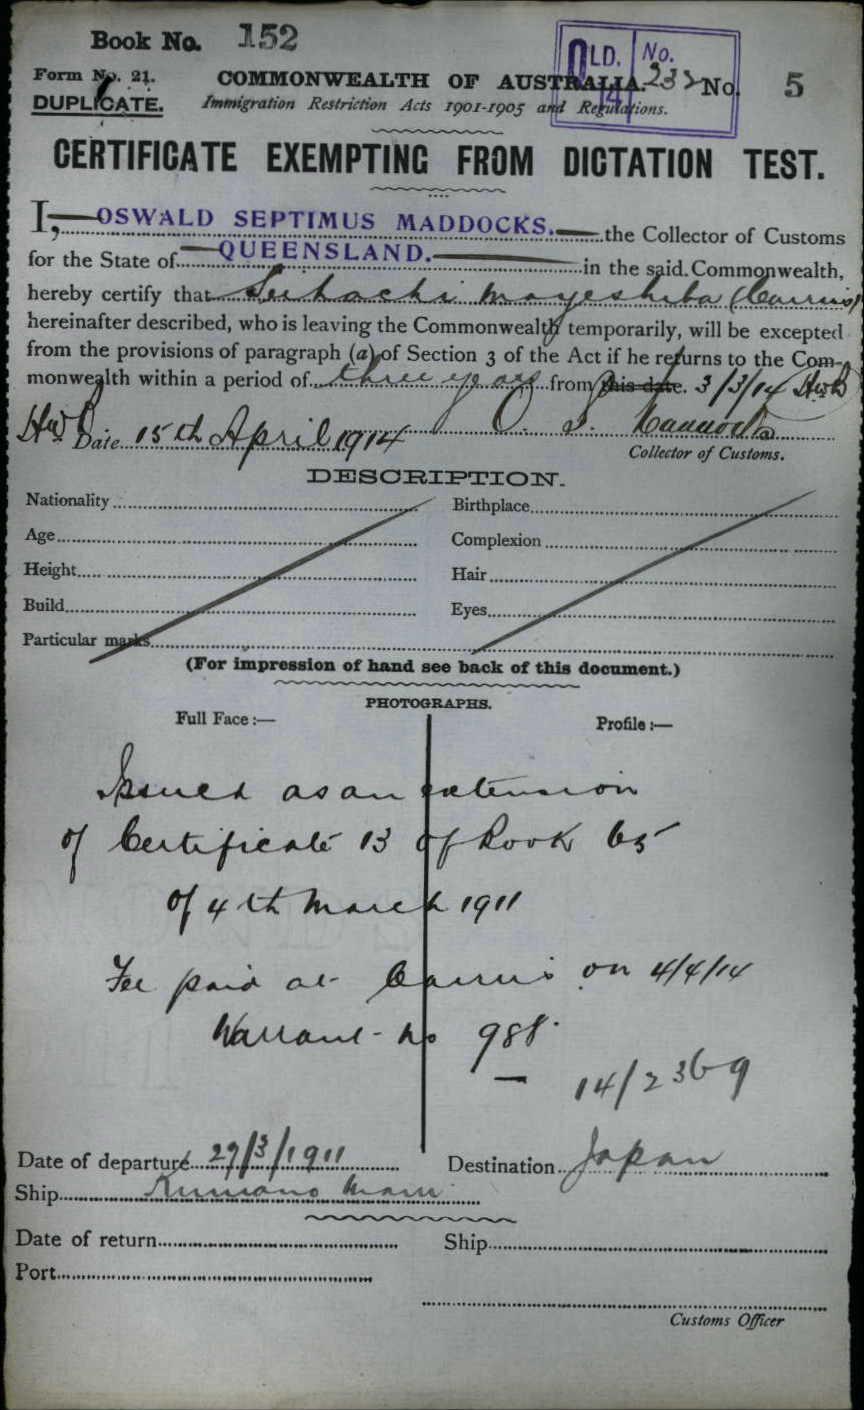 Book No. 152
QLD. No.
14 232
Form No. 21. COMMONWEALTH OF AUSTRALIA. No. 5
DUPLICATE. Immigration Restriction Acts 1901-1905 and Regulations.
CERTIFICATE EXEMPTING FROM DICTATION TEST.
I, OSWALD SEPTIMUS MADDOCKS. the Collector of Customs
for the State of QUEENSLAND. in the said Commonwealth,
hereby certify that Seihachi Mayeshiba (Cairns)
hereinafter described, who is leaving the Commonwealth temporarily, will be excepted
from the provisions of paragraph (a) of Section 3 of the Act if he returns to the Com-
monwealth within a period of three years from this date. 3/3/14
Date 15th April 1914 O. S. Maddocks
Collector of Customs.
DESCRIPTION.
Nationality Birthplace
Age Complexion
Height Hair
Build Eyes
Particular marks
(For impression of hand see back of this document.)
PHOTOGRAPHS.
Full Face :— Profile :—
Issued as an extension
of Certificate 13 of Book 65
of 4th March 1911
Fee paid at Cairns on 4/4/14
Warrant No 988
14/2369
Date of departure 29/3/1911 Destination Japan
Ship Kumano Maru
Date of return Ship
Port
Customs Officer